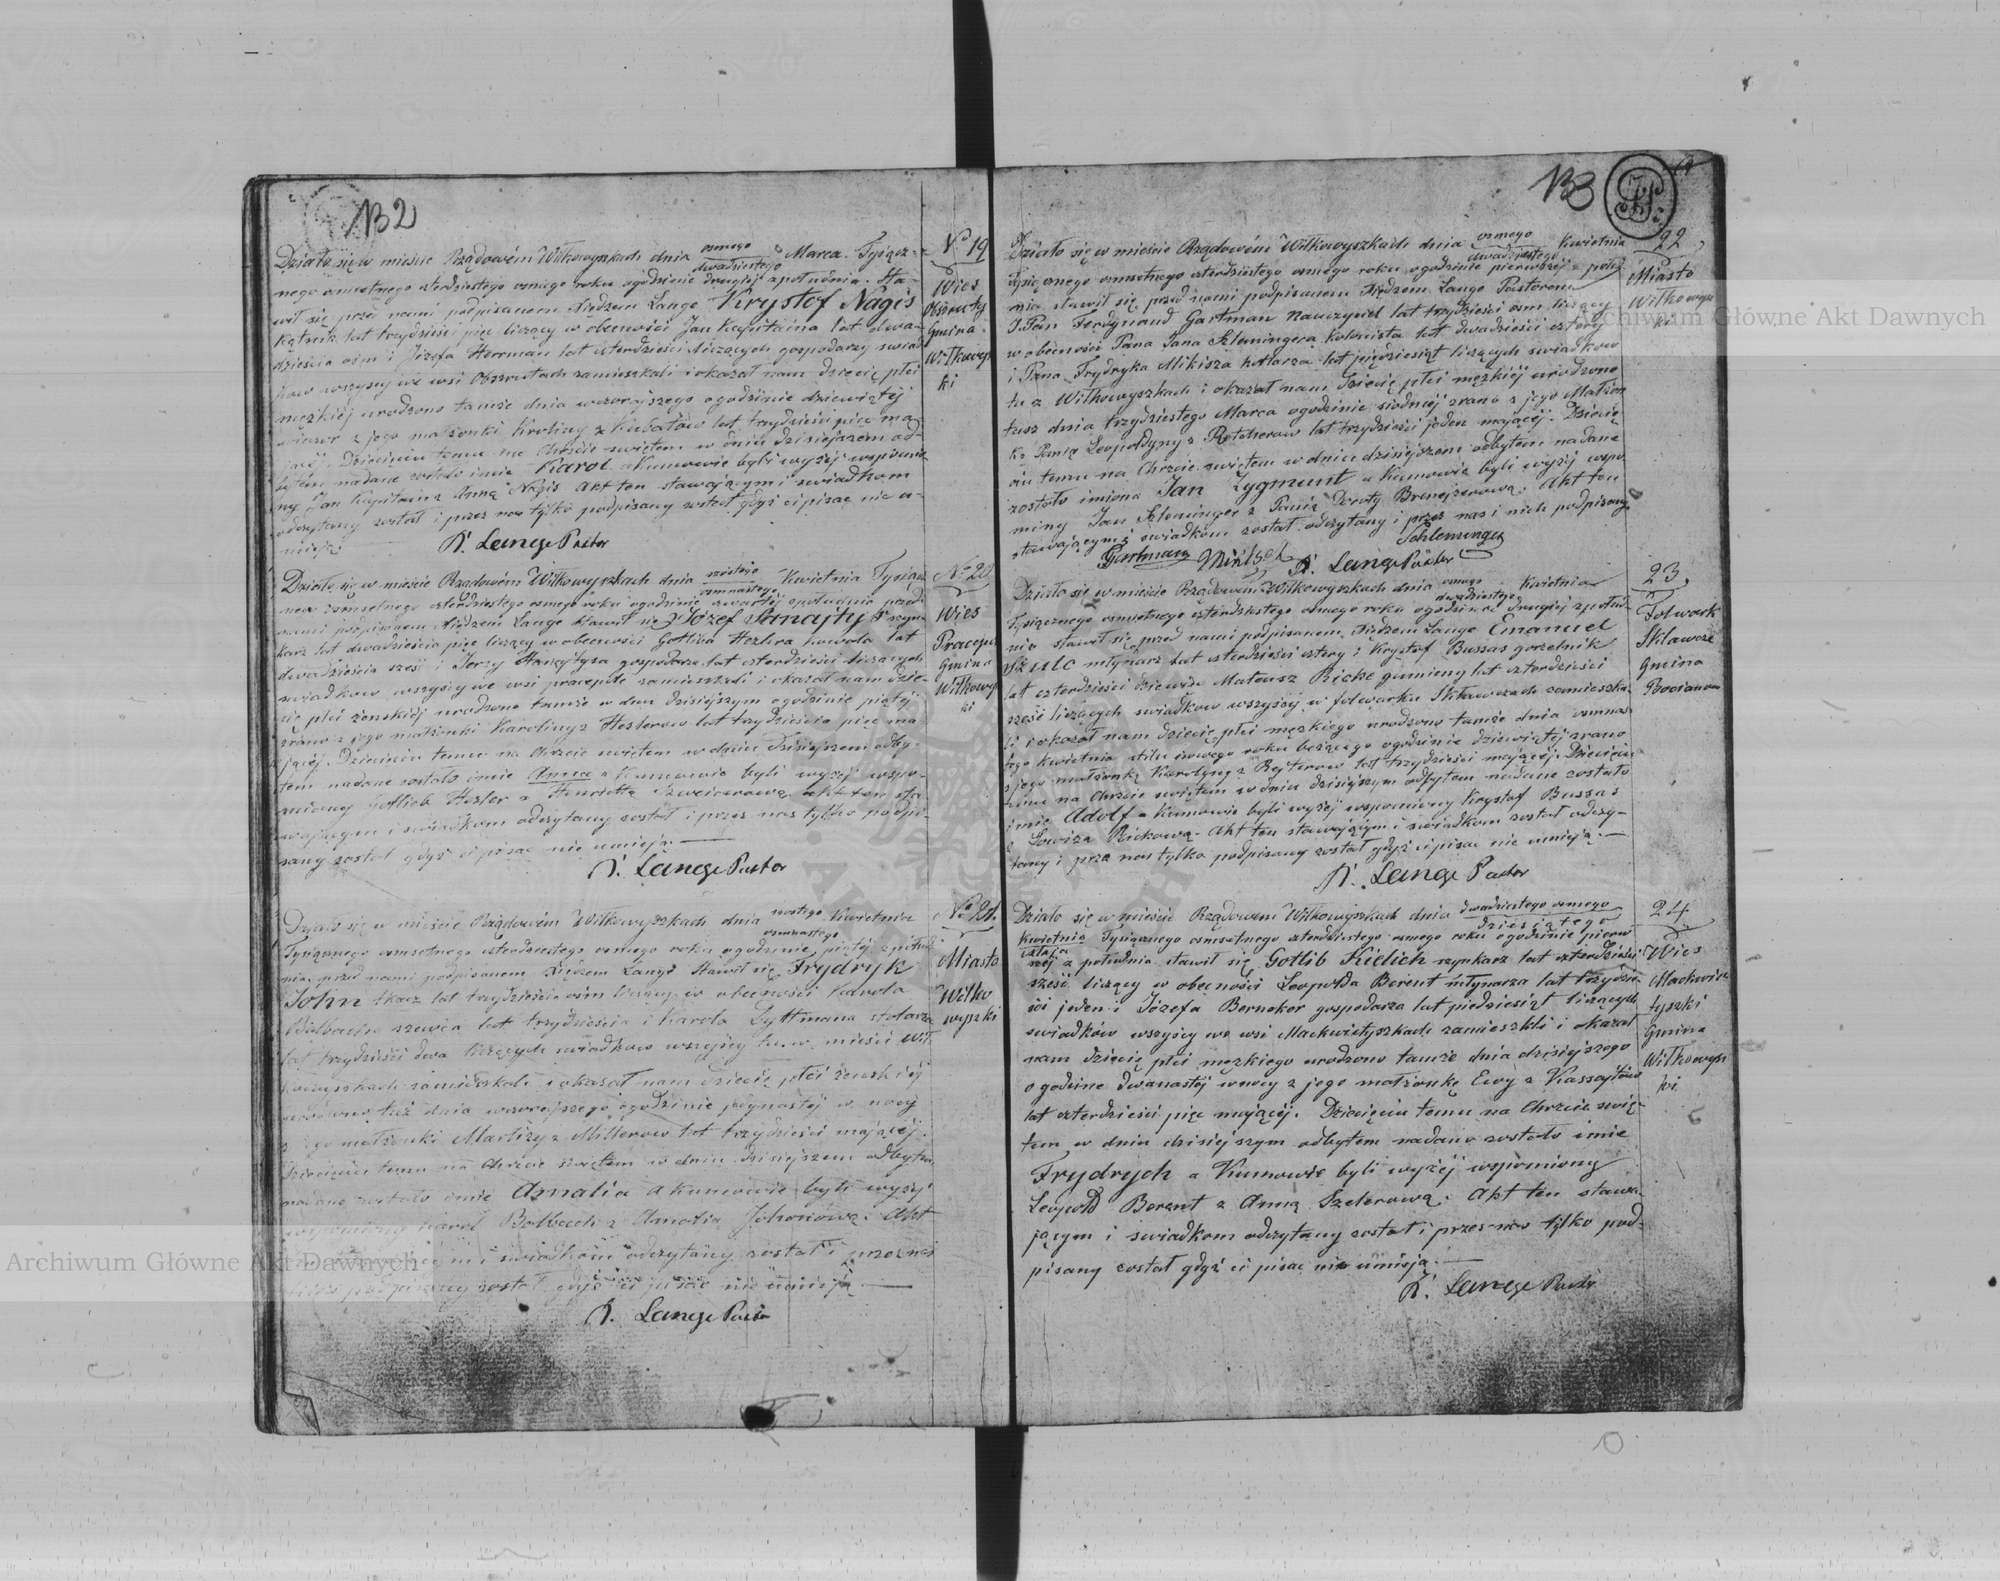 132
Działo się w mieście Rządowém Wiłkowyszkach dnia ósmego/dwadziestego Marca Tysiącz-
nego ośmsetnego czterdziestego osmego roku o godzinie drugiéj z południa. Sta-
wił się przed nami podpisanem Xiędzem Lange Krystof Nagis
kątnik lat trzydzieści pięć liczący w obecności Jan Kapitaina lat dwa-
dzieścia ośm i Józefa Herrman lat czterdzieści liczących gospodarzy świad-
ków wszyscy we wsi Obszrutach zamieszkali i okazał nam dziecię płci
męzkiéj urodzone tamże dnia wczorajszego o godzinie dziewiątéj
wieczor z jego małżonki Karoliny z Kubatów lat trzydzieści pięć ma-
jącéj. Dziecięciu temu na Chrzcie świętem w dniu dzisiejszem od-
bytem nadane zostało imie Karol a Kumowie byli wyżéj wspomnio-
ny Jan Kapitain z Anną Nagis Akt ten stawającym i świadkom
odczytany został i przez nas tylko podpisany został gdyż ci pisać nie u-
mieją.
Lange Pastor
No 19
Wies
Obszruty
Gmina
Wiłkowysz
ki
Działo się w mieście Rządowém Wiłkowyszkach dnia szóstego/osmnastego Kwietnia Tysiącz
nego osmsetnego czterdziestego osmego roku o godzinie czwartéj z południa przed
nami podpisanem Xiędzem Lange stawił się Józef
karz lat dwadzieścia pięć liczący w obecności Gotliba Hezlera kowala lat
dwadzieścia sześć i Jerzy gospodarza lat czterdzieści liczących
świadków wszyscy we wsi pracepole zamieszkali i okazał nam dzie-
cię płci żenskiéj urodzone tamże w dniu dzisiejszym o godzinie piątéj
zrana z jego małżonki Karoliny z Hezlerow lat trzydzieścia pięć ma
jącéj. Dziecięciu temu na Chrzcie świętem w dniu dzisiejszem odby-
tem nadane zostało imie Anna a Kumowie byli wyżej wspo-
mniony Gotlieb Hezler z Henriettą akt ten sta
wającym i świadkom odczytany został i przez nas tylko podpi-
sany został gdyż ci pisać nie umieją.
Lange Pastor
No 20
Wies
Gmina
Wiłkowysz
ki
Działo się w mieście Rządowém Wiłkowyszkach dnia szostego/osmnastego Kwietnia
Tysiącznego osmsetnego czterdziestego osmego roku o godzinie piątéj z połud
nia, przed nami podpisanem Xiędzem Lange Stawił się Frydryk
John tkacz lat trzydzieścia ośm liczący w obecności Karola
Bolbacha szewca lat trzydzieścia i Karola Dyttmana stolarza
lat trzydzieści dwa liczących świadków wszyscy tu w mieście Wił-
kowyszkach zamieszkali i okazał nam dziecię płci żeńskiéj
urodzone tuż dnia wczorajszego o godzinie jedynastéj w nocy
z jego małżonki z Millerow lat trzydzieści mającéj.
Dziecięciu temu na Chrzcie świętem w dniu dzisiejszem odbytem
nadane zostało imie Amalia a Kumowie byli wyżéj
wspomniony Karol Bolbach z Amalią Johonową. Akt
i świadkom odczytany został i przez nas
tylko podpisany został gdyż ci pisać nie umieją.
Lange Pastor
No 21.
Miasto
Wiłko
wyszki
133
Działo się w mieście Rządowém Wiłkowyszkach dnia osmego/dwadziestego Kwietnia
Tysiącznego osmsetnego czterdziestego osmego roku o godzinie pierwszéj z połud
nia, stawił się przed nami podpisanem Xiędzem Lange Pastorem
J. Pan Ferdynand Gartman nauczyciel lat trzydzieści ośm liczący
w obecności Pana Jana Szlemingera Kolonista lat dwadzieści cztery
i Pana Frydryka Mikisza lat pięćdziesiąt liczących świadków
tu z Wiłkowyszkach i okazał nam dziecię płci męzkiéj urodzone
tusz dnia trzydziestego Marca o godzinie siódméj zrana z jego Małżon
ki Panią Leopoldyny z lat trzydzieści jeden mającéj. Dziecię
ciu temu na Chrzcie świętem w dniu dzisiejszem odbytem nadane
zostało imiona Jan Zygmunt a Kumowie byli wyżéj wspo
miony Jan Szleminger z Panią Dorotą Akt ten
stawającym i świadkom został odczytany i przez nas i nich podpisany
Schleminger
Gartmann Lange Pastor
22
Miasto
Wiłkowysz
ki
Działo się w mieście Rządowém Wiłkowyszkach dnia osmego/dwadziestego Kwietnia
Tysiącznego osmsetnego czterdziestego osmego roku o godzinie drugiéj z połud-
nia stawił się przed nami podpisanem Xiędzem Lange Emanuel
Szulc młynarz lat czterdzieści cztery i Krystof Bussas gorzelnik
lat czterdzieści dziewięć Mateusz Ricke gumieny lat czterdzieści
sześć liczących świadków wszyscy w folwarku Skławczach zamieszka-
li i okazał nam dziecię płci męzkiego urodzone tamże dnia osmnas-
tego kwietnia stilu nowego roku bieżącego o godzinie dziewiątéj zrana
z jego małżonki Karoliny z Rejterow lat trzydzieści mającéj. Dziecięciu
temu na Chrzcie świętem w dniu dzisiejszym odbytem nadane zostało
imie Adolf a Kumowie byli wyżéj wspomniony Krystof Bussas
z Lowiza Rickową. Akt ten stawającym i świadkom został odczy-
tany i przez nas tylko podpisany został gdyż ci pisać nie umieją.
Lange Pastor
23
Folwark
Skławcze
Gmina
Działo się w mieście Rządowém Wiłkowyszkach dnia dwadziestego osmego/dziesiątego
Kwietnia Tysiącznego osmsetnego czterdziestego osmego roku o godzinie pierw
széj z południa stawił się Gotlib Kielich szynkarz lat czterdzieści
sześć liczący w obecności Leopolda Berent młynarza lat trzydzieś
ci jeden i Józefa Berneker gospodarza lat piedziesiąt liczących
świadków wszyscy we wsi Mackwietyszkach zamieszkli i okazał
nam dziecię płci męzkiego urodzone tamże dnia dzisiejszego
o godzine dwanastéj w nocy z jego małżonkę Ewy z Kassajtisów
lat czterdzieści pięc mającéj. Dziecięciu temu na Chrzcie świę-
tem w dniu dzisiejszym odbytem nadano zostało imie
Frydrych a Kumowie byli wyżéj wspomniony
Leopold Berent z Anną Szelerową. Akt ten stawa-
jącym i świadkom odczytany został i przez nas tylko pod-
pisany został gdyż ci pisać nie umieją.
Lange Pastor
24
Wies
Mackwie
tyszki
Gmina
Wiłkowysz
ki
Archiwum Główne Akt Dawnych
Archiwum Główne Akt Dawnych